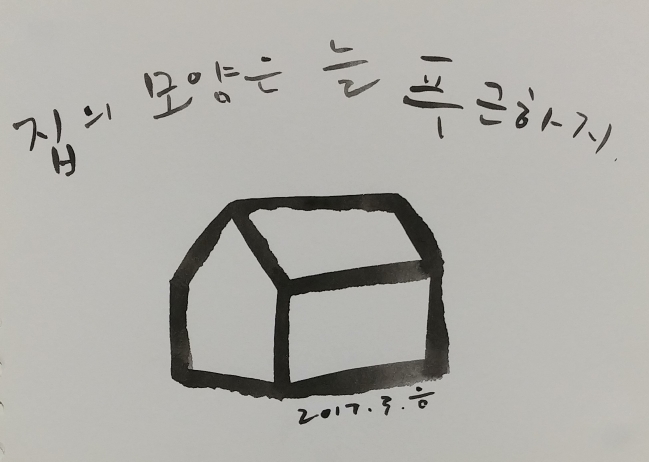 집의 모양은 늘 푸근하지.
2017. 3. 응